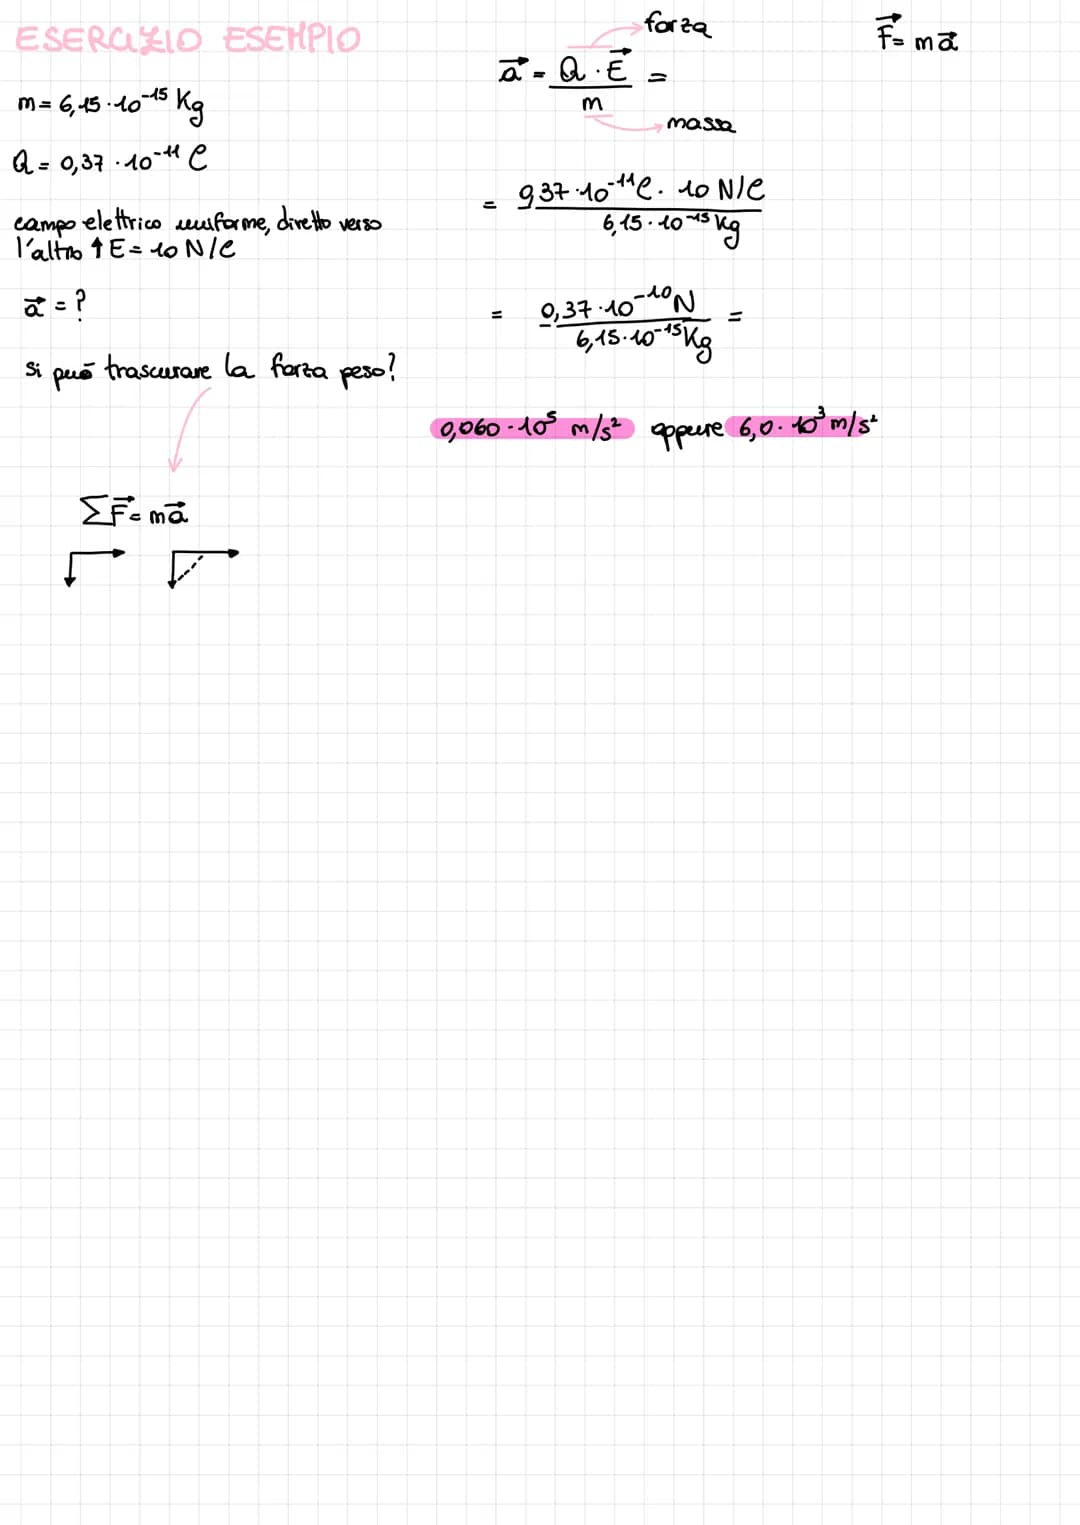 ESERCIZIO ESEMPIO
m = 6,15 · 10⁻¹⁵ Kg
Q = 0,37 · 10⁻¹¹ C
campo elettrico uniforme, diretto verso
l'altro ↑ E = 10 N/C
a⃗ = ?
si può trascurare la forza peso?
ΣF⃗ = ma⃗
forza
a⃗ = Q · E⃗ / m =
massa
F⃗ = ma⃗
= 0,37 · 10⁻¹¹ C · 10 N/C / 6,15 · 10⁻¹⁵ Kg
= 0,37 · 10⁻¹⁰ N / 6,15 · 10⁻¹⁵ Kg =
0,060 · 10⁵ m/s² oppure 6,0 · 10³ m/s²